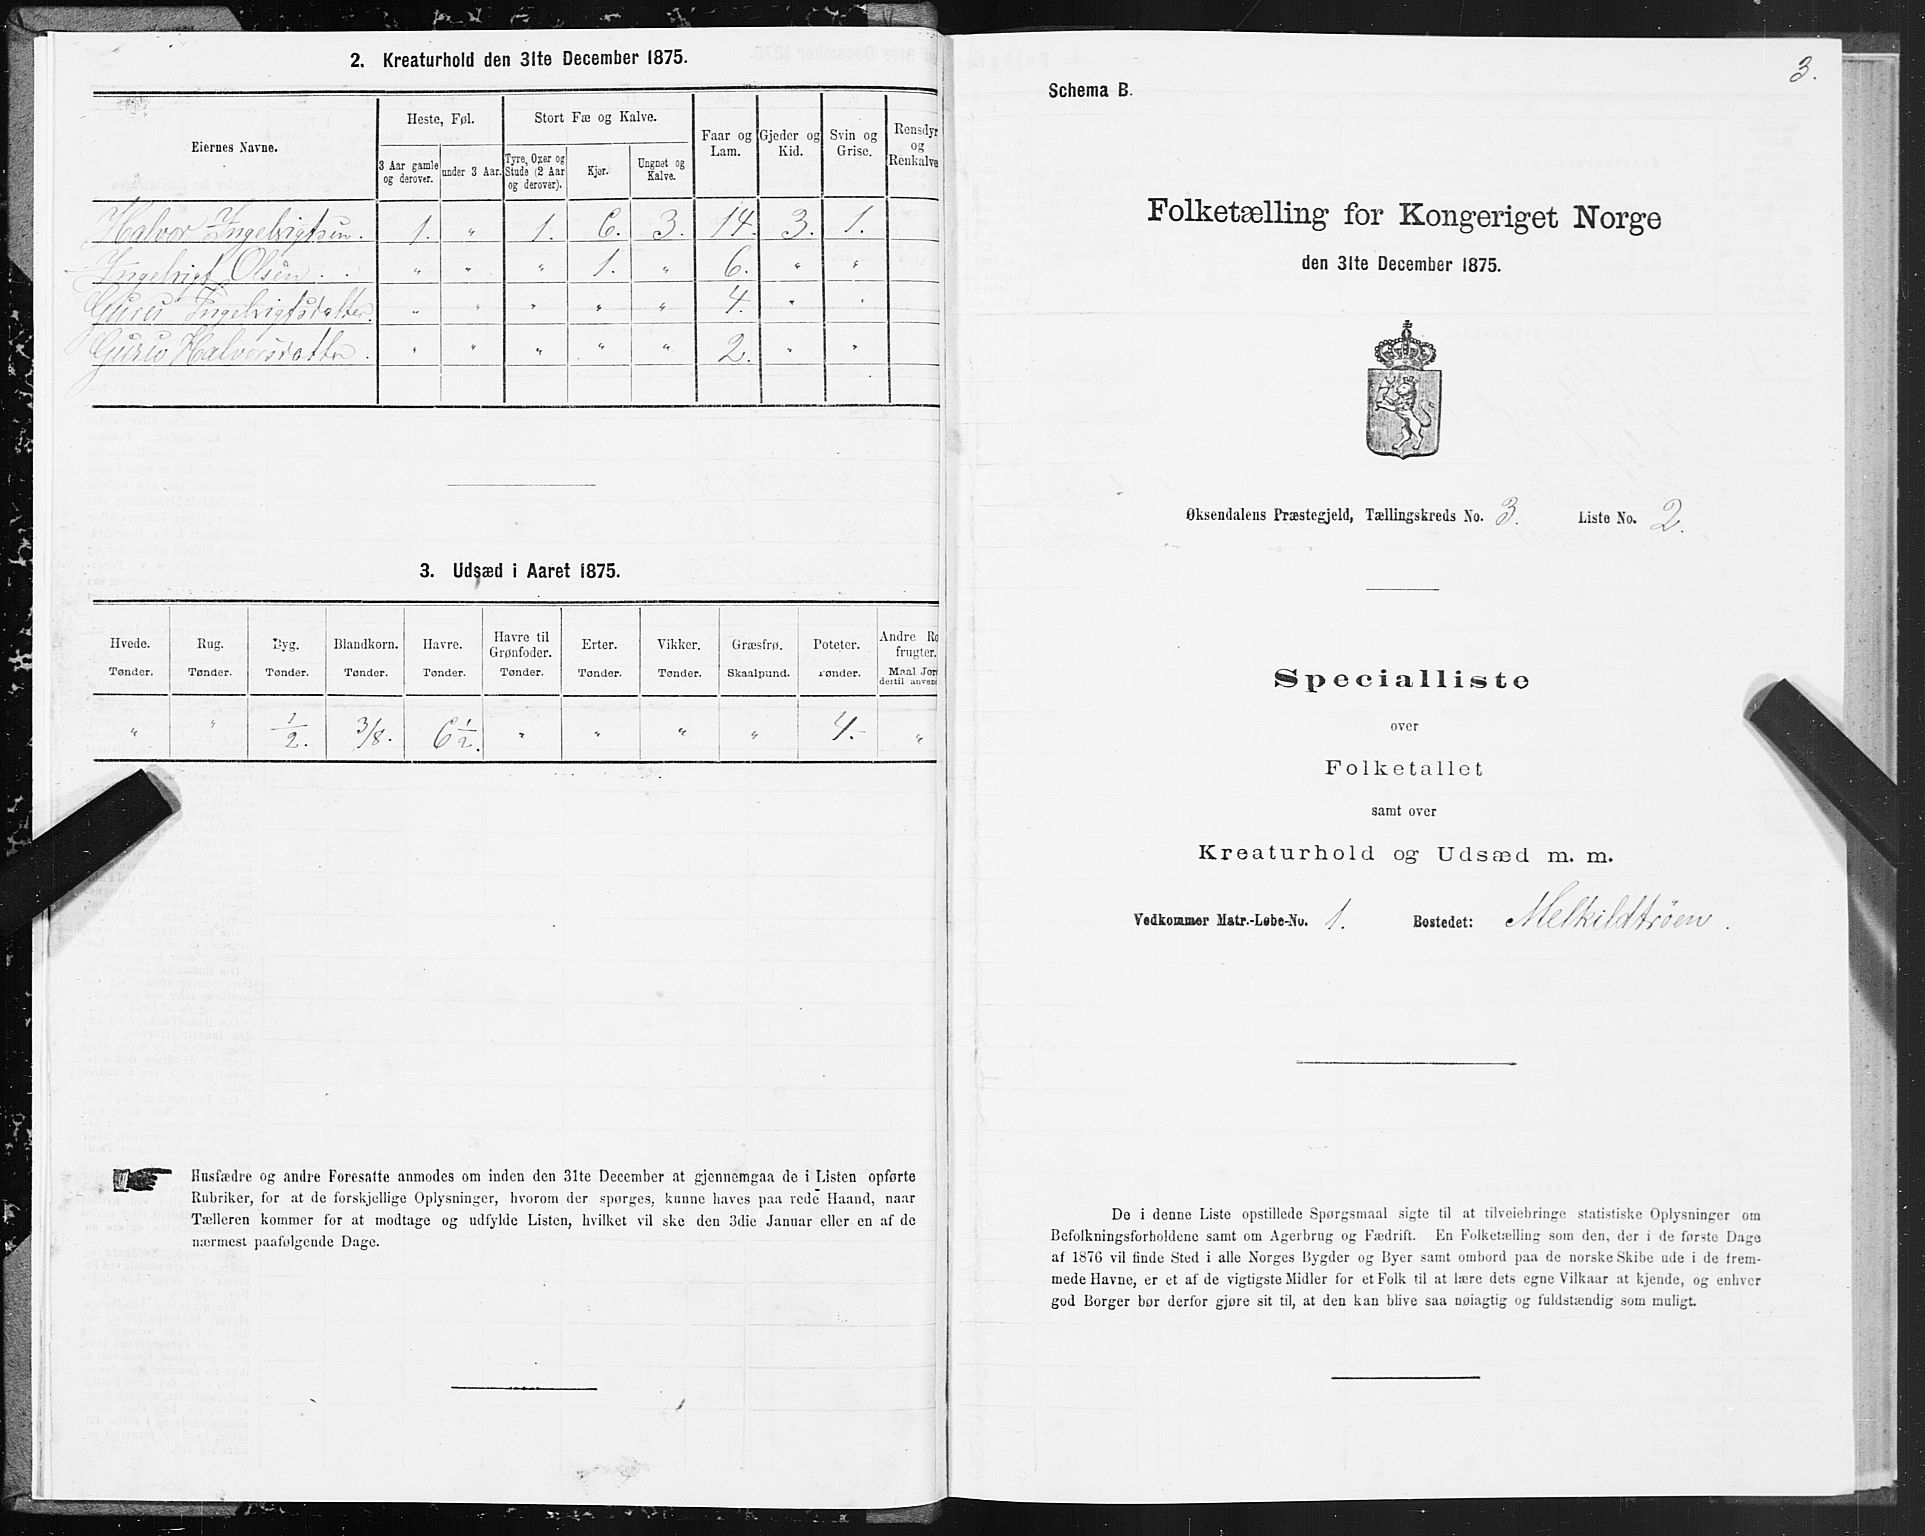 2. Kreaturhold den 31te December 1875.
Eiernes Navne.
Heste, Føl.
Stort Fæ og Kalve.
Faar og Lam.
Gjeder og Kid.
Svin og Grise.
Rensdyr og Renkalve
3 Aar gamle og derover.
under 3 Aar.
Tyre, Oxer og Stude (2 Aar og derover).
Kjør.
Ungnøt og Kalve.
Halvor Ingebrigtsen. 1. " 1. 6. 3. 14. 3. 1.
Ingebrigt Olsen . . " " " 1. " 6. " "
Guru Ingebrigtsdatter. " " " " " 4. " "
Guru Halvorsdatter. " " " " " 2. " "
3. Udsæd i Aaret 1875.
Hvede. Rug. Byg. Blandkorn. Havre. Havre til Grønfoder. Erter. Vikker. Græsfrø. Poteter. Andre Ro frugter.
Tønder. Tønder. Tønder. Tønder. Tønder. Tønder. Tønder. Tønder. Skaalpund. Tønder. Maal Jor dertil anven
" " 1/2. 3/8. 6 1/2. " " " " 4. "
Husfædre og andre Foresatte anmodes om inden den 31te December at gjennemgaa de i Listen opførte
Rubriker, for at de forskjellige Oplysninger, hvorom der spørges, kunne haves paa rede Haand, naar
Tælleren kommer for at modtage og udfylde Listen, hvilket vil ske den 3die Januar eller en af de
nærmest paafølgende Dage.
3.
Schema B.
Folketælling for Kongeriget Norge
den 31te December 1875.
Øksendalens Præstegjeld, Tællingskreds No. 3. Liste No. 2.
Specialliste
over
Folketallet
samt over
Kreaturhold og Udsæd m. m.
Vedkommer Matr.-Løbe-No. 1. Bostedet: Melkildtrøen.
De i denne Liste opstillede Spørgsmaal sigte til at tilveiebringe statistiske Oplysninger om
Befolkningsforholdene samt om Agerbrug og Fædrift. En Folketælling som den, der i de første Dage
af 1876 vil finde Sted i alle Norges Bygder og Byer samt ombord paa de norske Skibe ude i de frem-
mede Havne, er et af de vigtigste Midler for et Folk til at lære dets egne Vilkaar at kjende, og enhver
god Borger bør derfor gjøre sit til, at den kan blive saa nøiagtig og fuldstændig som muligt.